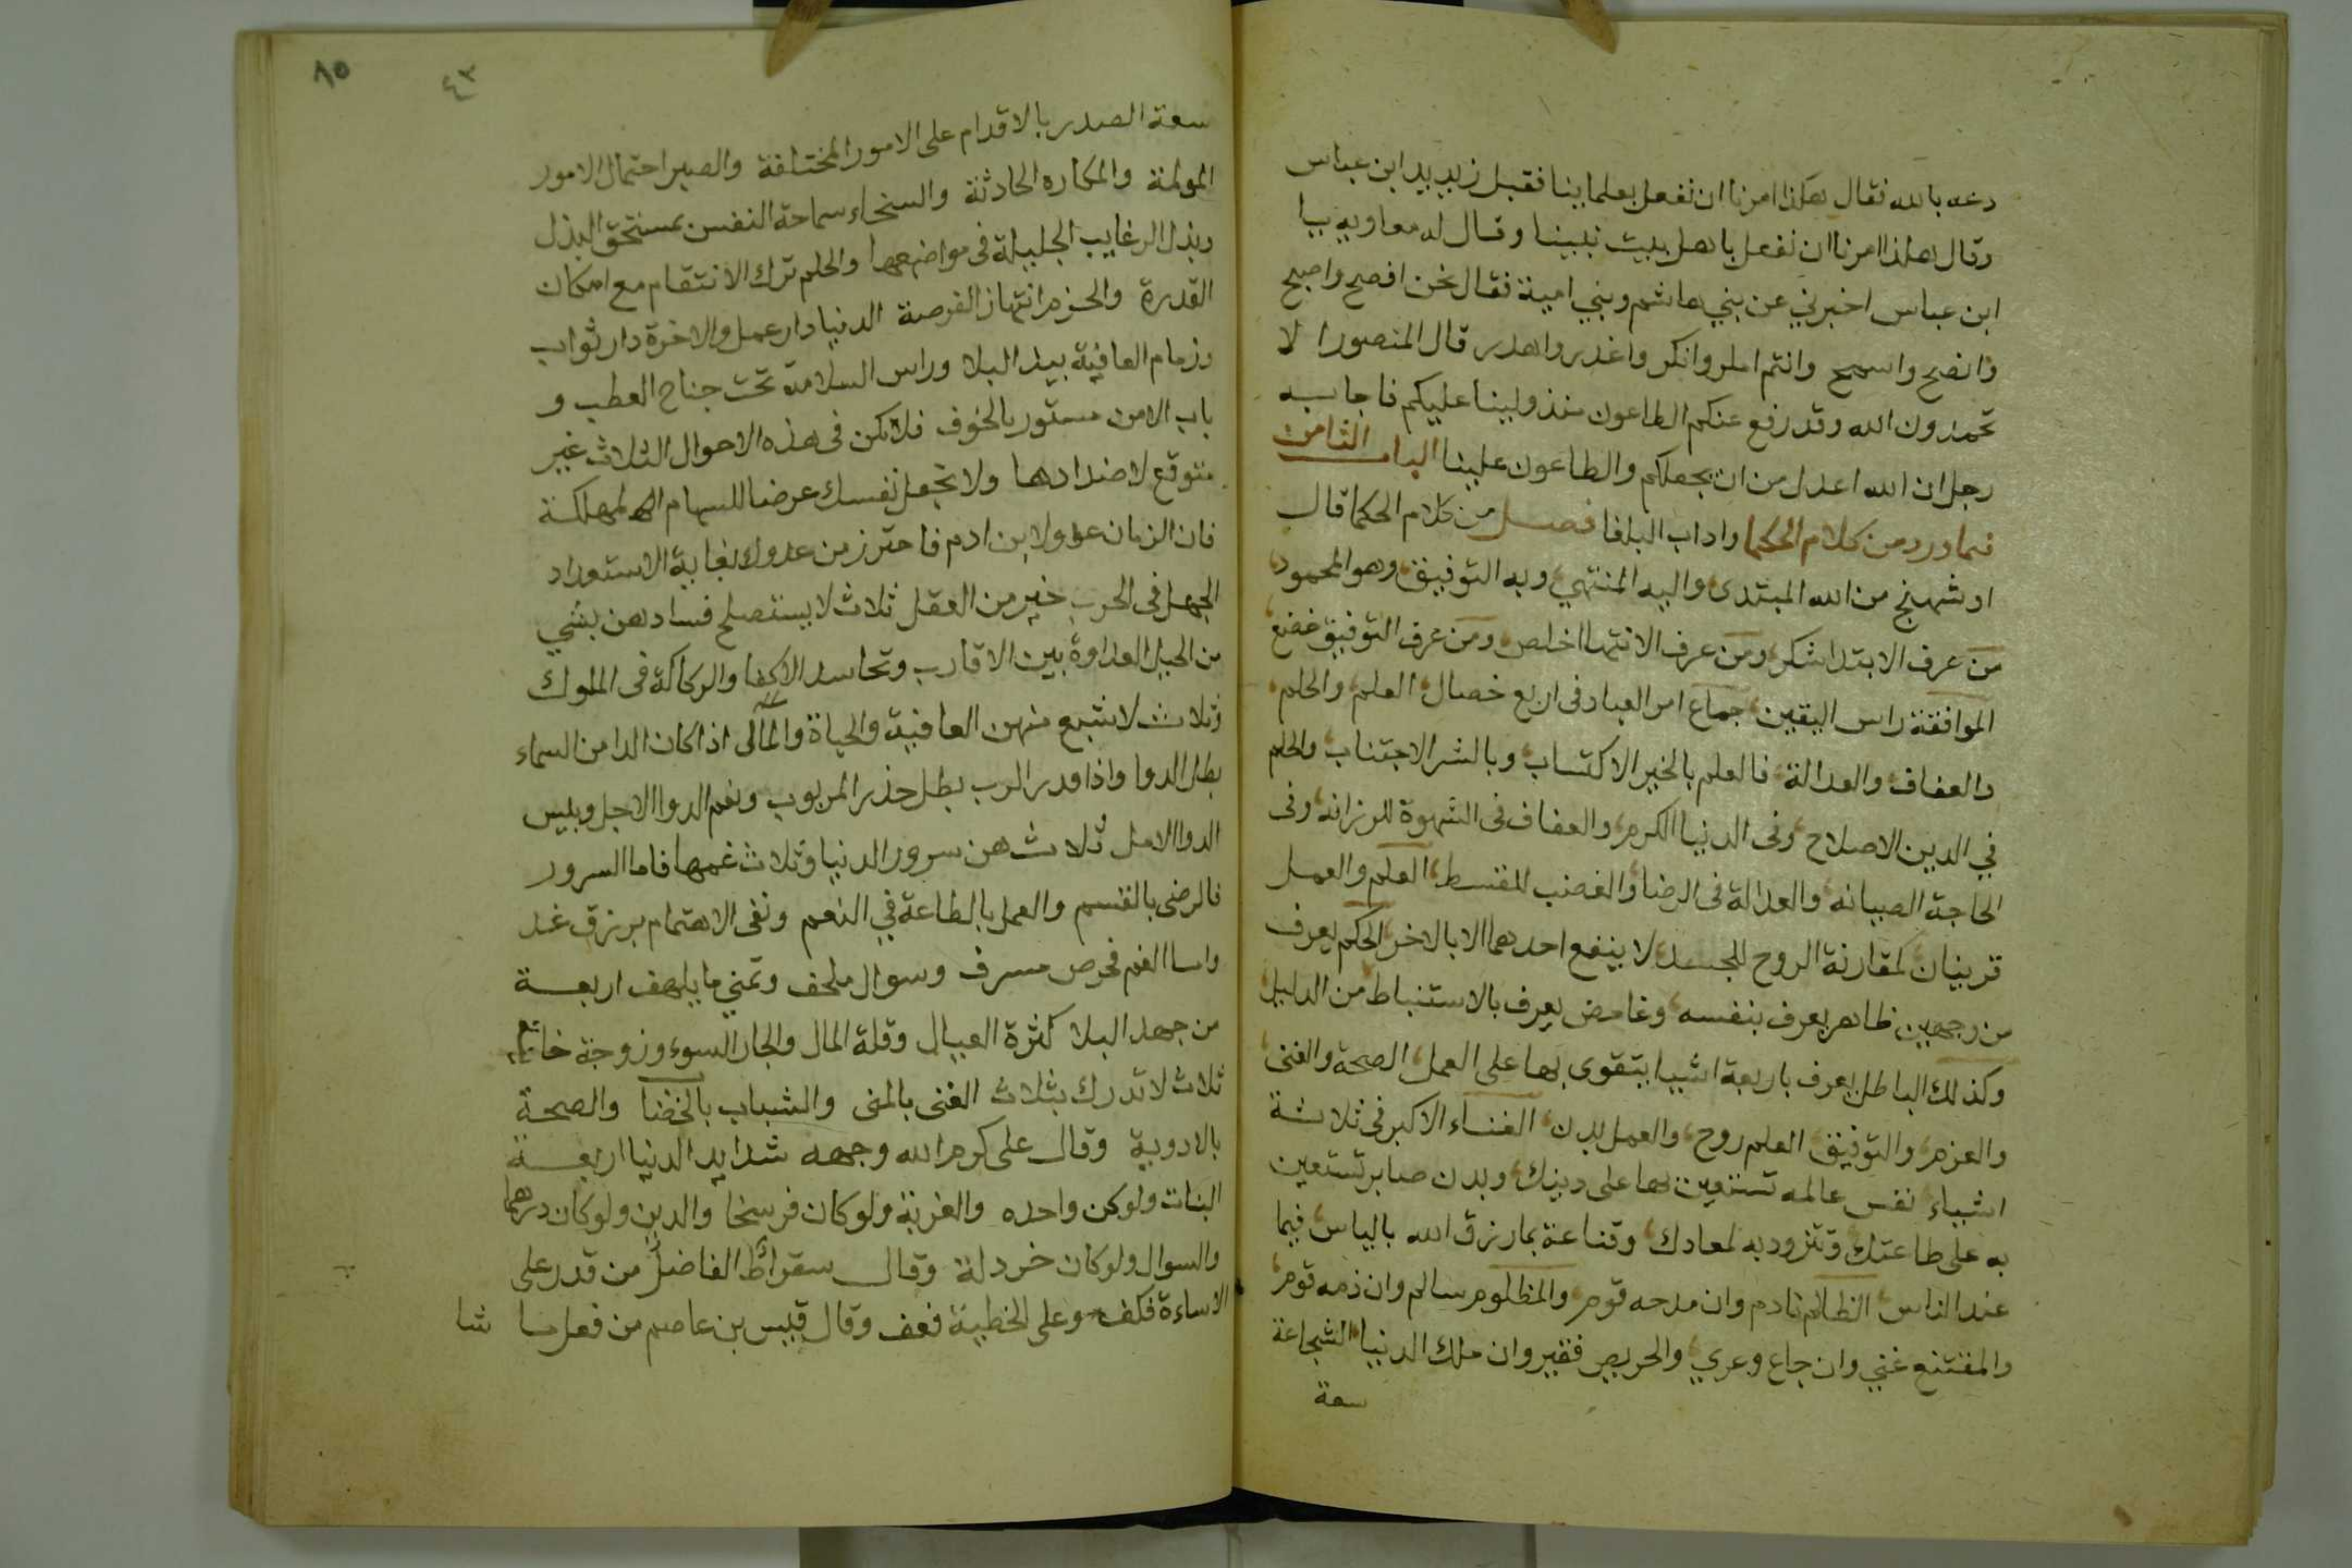 دعه بالله فقال هكذا امرنا ان نفعل بعلماينا فقبل زيد يد ابن عباس
وقال هكذا امرنا ان نفعل باهل بيت نبينا وقال له معاويه يا
ابن عباس اخبرني عن بني هاشم وبني امية فقال نحن افصح واصبح
وانصح واسمح وانتم امكر وانكر واغدر واهدر قال المنصور الا
تحمدون الله وقد رفع عنكم الطاعون منذ ولينا عليكم فاجابه
رجل ان الله اعدل من ان يجعلكم والطاعون علينا الباب الثامن
فيما ورد من كلام الحكما واداب البلغا فصل من كلام الحكما قال
اوشهنج من الله المبتدى واليه المنتهي وبه التوفيق وهو المحمود
من عرف الابتدا شكر ومن عرف الانتها اخلص ومن عرف التوفيق خضع
الموافقة راس اليقين جماع امر العباد فى اربع خصال العلم والحلم
والعفاف والعدالة فالعلم بالخير الاكتساب وبالشر الاجتناب والحلم
في الدين الاصلاح وفى الدنيا الكرم والعفاف فى الشهوة للرزانه وفى
الحاجة الصيانه والعدالة فى الرضا والغضب للقسط العلم والعمل
قرينان كمقارنة الروح للجسد لا ينفع احدهما الا بالاخر الحكم يعرف
من وجهين ظاهر يعرف بنفسه وغامض يعرف بالاستنباط من الدليل
وكذلك الباطل يعرف باربعة اشيا يتقوى بها على العمل الصحة والغنى
والعزم والتوفيق العلم روح والعمل بدن الغناء الاكبر فى ثلاثة
اشياء نفس عالمه تستعين بها على دينك وبدن صابر تستعين
به على طاعتك وتتزود به لمعادك وقناعة بما رزق الله بالياس فيما
عند الناس الظالم نادم وان مدحه قوم والمظلوم سالم وان ذمه قوم
والمقتنع غني وان جاع وعري والحريص فقير وان ملك الدنيا الشجاعة
سعة
٨٥
٤٣
سعة الصدر بالاقدام على الامور المختلفة والصبر احتمال الامور
المولمة والمكاره الحادثة والسخاء سماحة النفس بمستحق البذل
وبذل الرغايب الجليلة فى مواضعها والحلم ترك الانتقام مع امكان
القدرة والحزم انتهاز الفرصة الدنيا دار عمل والاخرة دار ثواب
وزمام العافية بيد البلا وراس السلامة تحت جناح العطب و
باب الامن مستور بالخوف فلا تكن فى هذه الاحوال الثلاث غير
متوقع لاضدادها ولا تجعل نفسك عرضا للسهام المهلكة
فان الزمان عدو لابن ادم فاحترز من عدوك بغاية الاستعداد
الجهل فى الحرب خير من العقل ثلاث لا يستصلح فسادهن بشي
من الحيل العداوة بين الاقارب وتحاسد الاكفا والركاكة فى الملوك
وثلاث لا يشبع منهن العافية والحياة والمال اذا كان الدا من السماء
بطل الدوا واذا قدر الرب بطل حذر المربوب ونعم الدوا الاجل وبيس
الدوا الامل ثلاث هن سرور الدنيا وثلاث غمها فاما السرور
فالرضى بالقسم والعمل بالطاعة في النعم ونفى الاهتمام برزق غد
واما الغم فحرص مسرف وسوال ملحف وتمني ما يلهف اربعة
من جهد البلا كثرة العيال وقلة المال والجار السوء وزوجة
ثلاث لا تدرك بثلاث الغنى بالمنى والشباب بالخضا والصحة
بالادوية وقال على كرم الله وجهه شدايد الدنيا اربعة
البنات ولو كن واحده والغربة ولو كان فرسخا والدين ولو كان درهما
والسوال ولو كان خردلة وقال سقراط الفاضل من قدر على
الاساءة فكف وعلى الخطية فعف وقال قيس بن عاصم من فعل ما شا